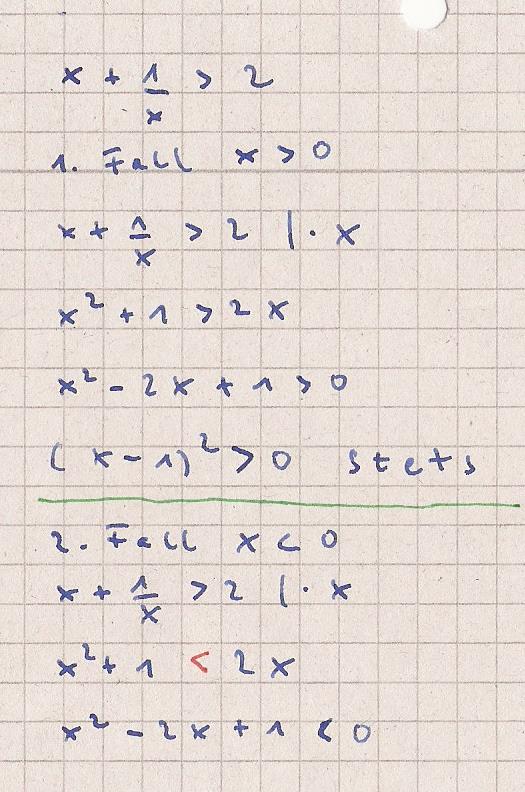 x + 1/x > 2
1. Fall x > 0
x + 1/x > 2 | · x
x² + 1 > 2x
x² - 2x + 1 > 0
(x - 1)² > 0 stets
2. Fall x < 0
x + 1/x > 2 | · x
x² + 1 < 2x
x² - 2x + 1 < 0